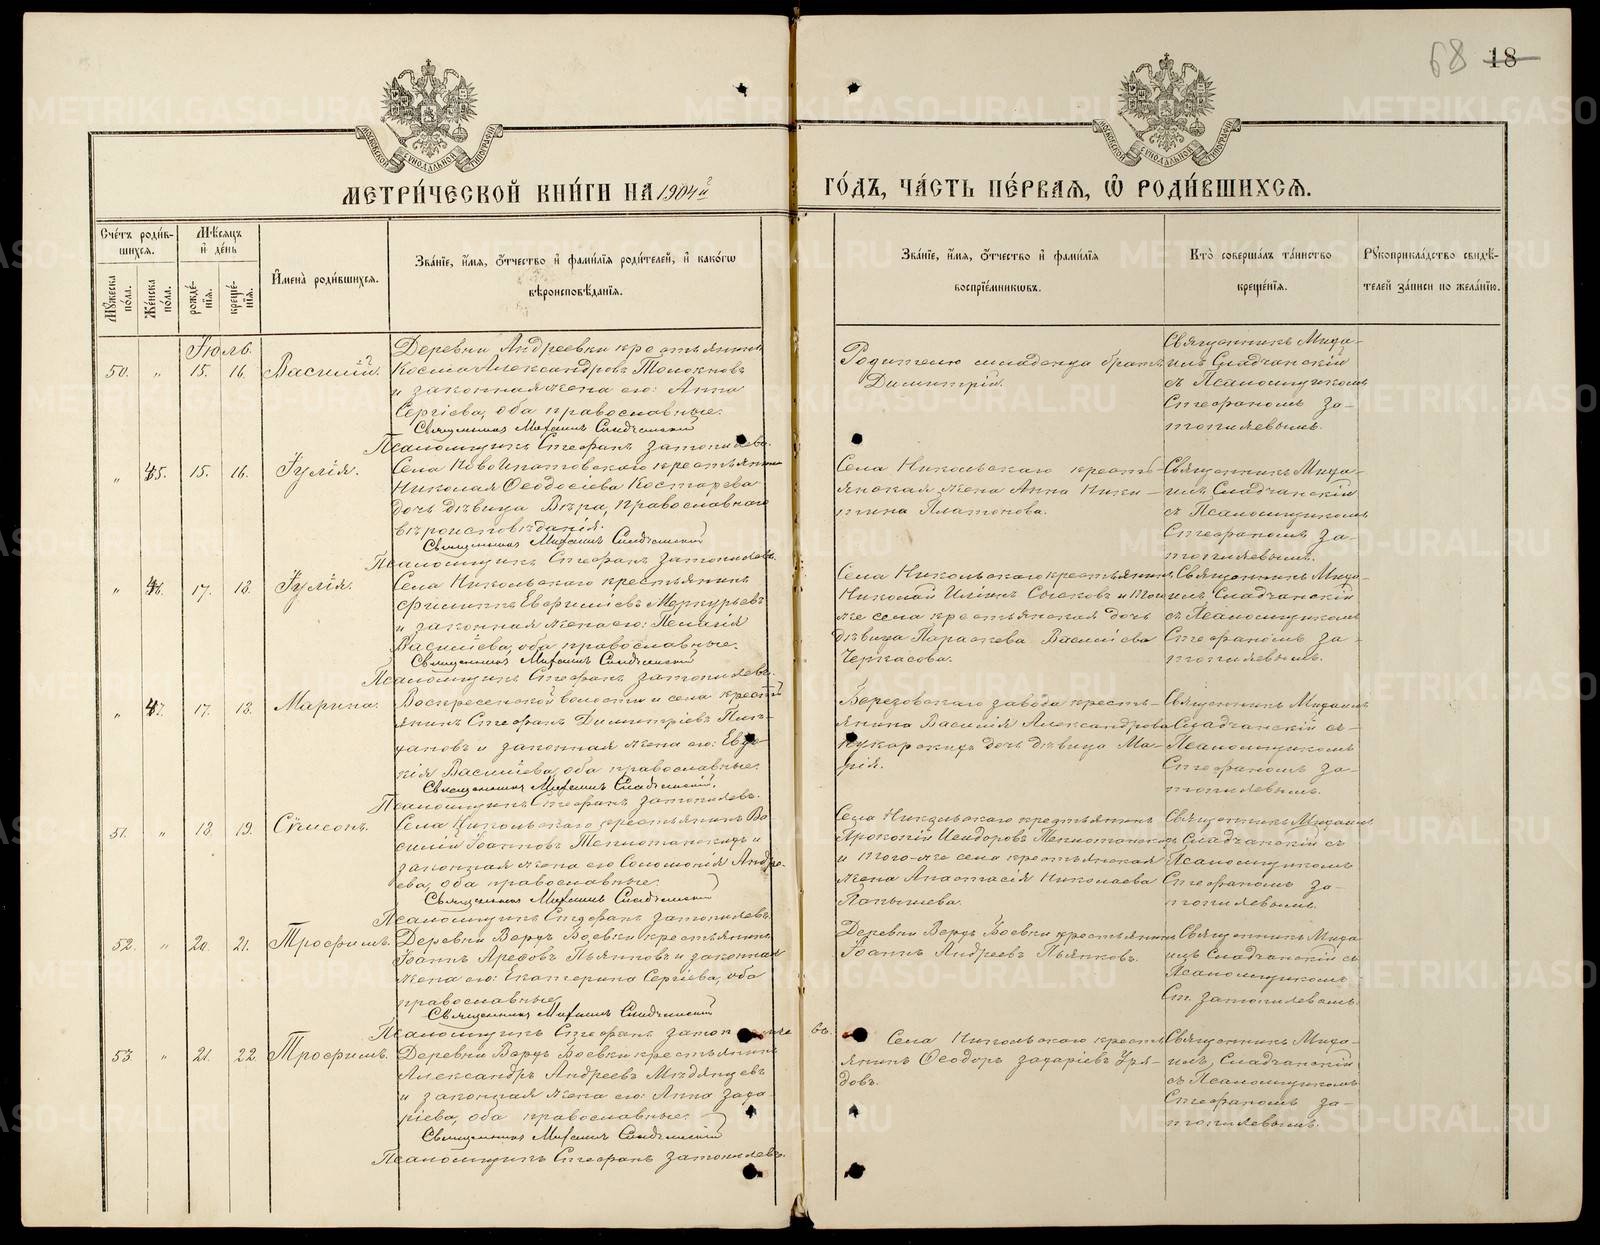 68 18
МОСКОВСКОЙ СѴНОДАЛЬНОЙ ТИПОГРАФІИ
МОСКОВСКОЙ СѴНОДАЛЬНОЙ ТИПОГРАФІИ
МЕТРИ́ЧЕСКОЙ КНИ́ГИ НА 1904й
ГО́ДЪ, ЧА́СТЬ ПЕ́РВАѦ, Ѡ РОДИ́ВШИХСѦ.
Сче́тъ роди́в-
шихся.
Мꙋ́жеска по́ла.
Же́нска по́ла.
Мѣ́сяцъ
и҆ де́нь
рожде́-
нїя.
креще́-
нїя.
И҆мена̀ роди́вшихся.
Зва́нїе, и҆́мя, ѻ҆́тчество и҆ фами́лїя роди́телей, и҆ како́гѡ
вѣроисповѣ́данїя.
Зва́нїе, и҆́мя, ѻ҆́тчество и҆ фами́лїя
воспрїе́мниковъ.
Кто̀ соверша́лъ та́инство
креще́нїя.
Рꙋкоприкла́дство свидѣ́-
телей за́писи по жела́нїю.
Іюль.
50. " 15. 16. Василій.
Деревни Андреевки крестьянинъ
Косма Александровъ Толокновъ
и законная жена его: Анна
Сергіева, оба православные.
Священникъ Михаилъ Сладчанскій
Псаломщикъ Стефанъ Затопляевъ.
Родителю младенца братъ
Димитрій.
Священникъ Миха-
илъ Сладчанскій
съ Псаломщикомъ
Стефаномъ За-
топляевымъ.
" 45. 15. 16. Іулія.
Села Новоипатовскаго крестьянина
Николая Ѳеодосіева Костарева
дочь дѣвица Вѣра, православнаго
вѣроисповѣданія.
Священникъ Михаилъ Сладчанскій
Псаломщикъ Стефанъ Затопляевъ.
Села Никольскаго кресть-
янская жена Анна Ники-
тина Платонова.
Священникъ Миха-
илъ Сладчанскій
съ Псаломщикомъ
Стефаномъ За-
топляевымъ.
" 46. 17. 18. Іулія.
Села Никольскаго крестьянинъ
Филиппъ Евфиміевъ Меркурьевъ
и законная жена его: Пелагія
Васильева, оба православные.
Священникъ Михаилъ Сладчанскій
Псаломщикъ Стефанъ Затопляевъ.
Села Никольскаго крестьянинъ
Николай Иліинъ и того
же села крестьянская дочь
дѣвица Параскева Васильева
Черкасова.
Священникъ Миха-
илъ Сладчанскій
съ Псаломщикомъ
Стефаномъ За-
топляевымъ.
" 47. 17. 18. Марина.
Воскресенской волости и села кресть-
янинъ Стефанъ Димитріевъ
и законная жена его: Евдо-
кія Васильева, оба православные.
Священникъ Михаилъ Сладчанскій.
Псаломщикъ Стефанъ Затопляевъ.
Березовскаго завода кресть-
янина Василія Александрова
дочь дѣвица Ма-
рія.
Священникъ Михаилъ
Сладчанскій съ
Псаломщикомъ
Стефаномъ За-
топляевымъ.
51. " 18. 19. Сѵмеонъ.
Села Никольскаго крестьянинъ Ва-
силій Іоанновъ и
законная жена его Соломонія Андре-
ева, оба православные.
Священникъ Михаилъ Сладчанскій
Псаломщикъ Стефанъ Затопляевъ.
Села Никольскаго крестьянинъ
Прокопій Исидоровъ
и того-же села крестьянская
жена Анастасія Николаева
Священникъ Михаилъ
Сладчанскій съ
Псаломщикомъ
Стефаномъ За-
топляевымъ.
52. " 20. 21. Трофимъ.
Деревни Верхъ Боевки крестьянинъ
Іоаннъ Арефовъ Пьянковъ и законная
жена его: Екатерина Сергіева, оба
православные
Священникъ Михаилъ Сладчанскій
Псаломщикъ Стефанъ Затопляевъ.
Деревни Верхъ Боевки крестьянинъ
Іоаннъ Андреевъ Пьянковъ.
Священникъ Миха-
илъ Сладчанскій съ
Псаломщикомъ
Ст. Затопляевымъ.
53. " 21. 22. Трофимъ.
Деревни Верхъ Боевки крестьянинъ
Александръ Андреевъ Мѣдянцевъ
и законная жена его: Анна Заха-
ріева, оба православные.
Священникъ Михаилъ Сладчанскій
Псаломщикъ Стефанъ Затопляевъ.
Села Никольскаго кресть-
янинъ Ѳеодоръ Захаріевъ Уря-
довъ.
Священникъ Миха-
илъ Сладчанскій
съ Псаломщикомъ
Стефаномъ За-
топляевымъ.
METRIKI.GASO-URAL.RU